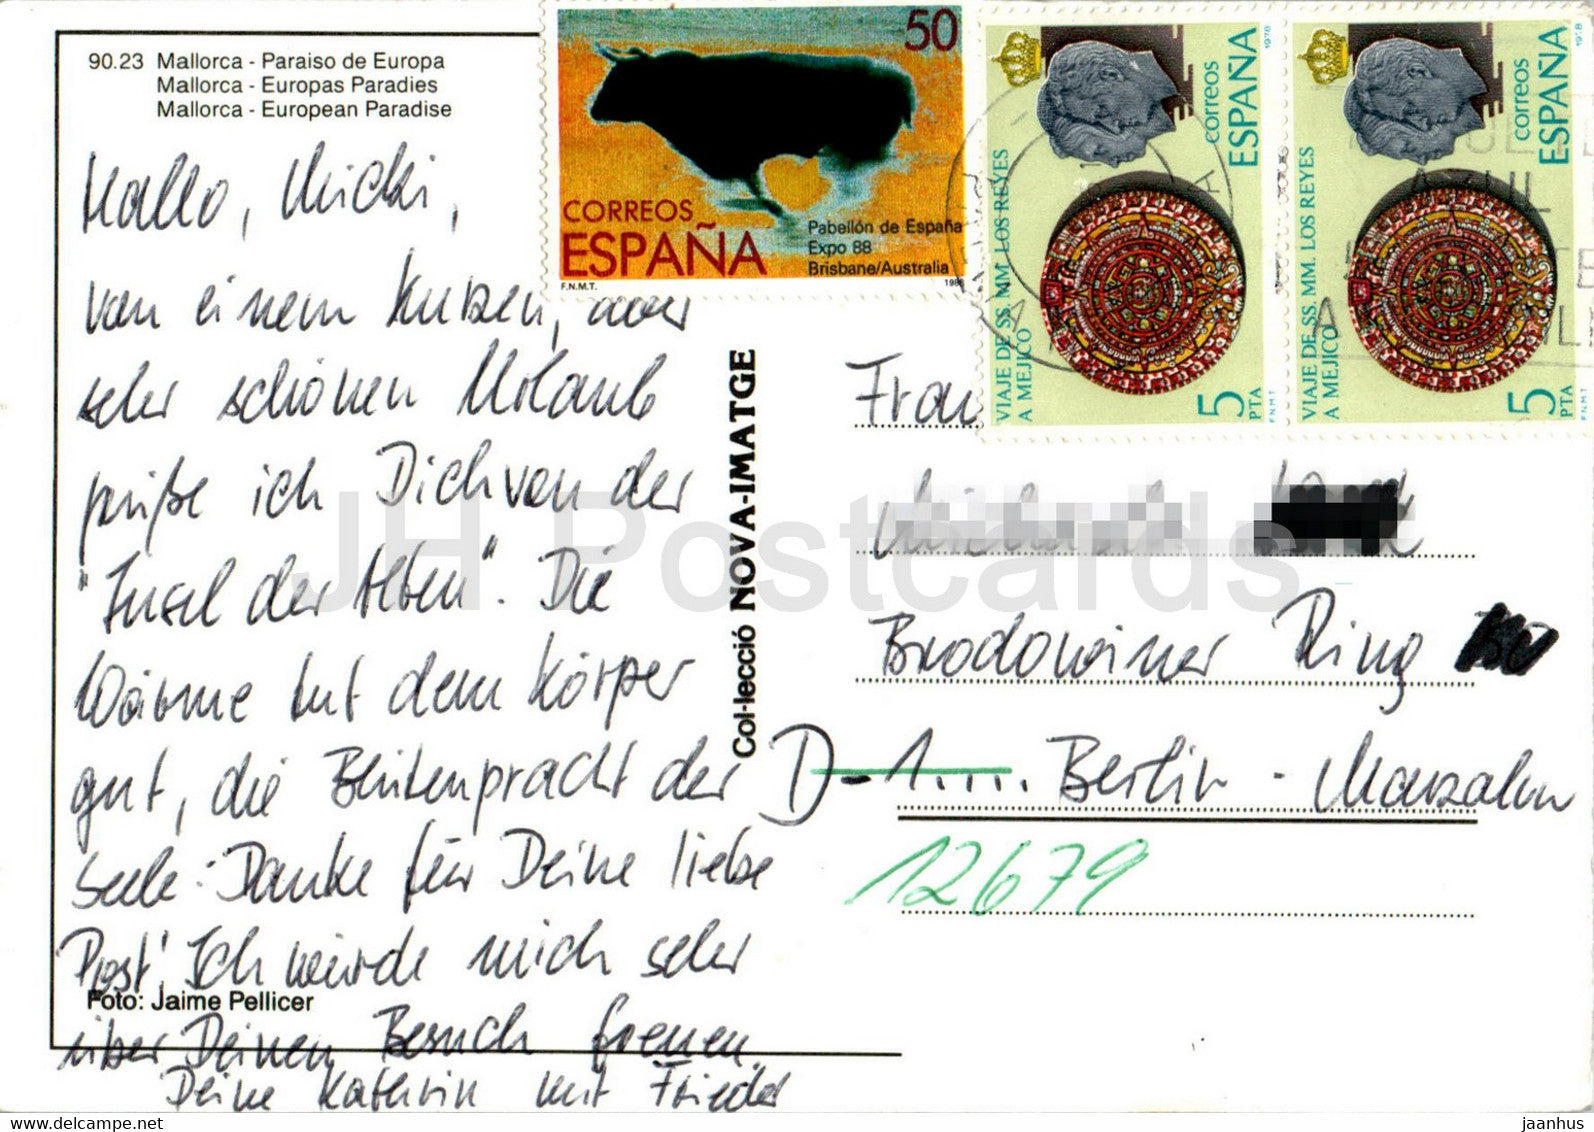 90.23 Mallorca - Paraiso de Europa
Mallorca - Europas Paradies
Mallorca - European Paradise
Hallo, Micki,
von einem kurzen, aber
sehr schönen Urlaub
grüße ich Dich von der
"Insel der Alten". Die
Wärme tut dem Körper
gut, die Blütenpracht der
Seele. Danke für Deine liebe
Post! Ich würde mich sehr
über Deinen Besuch freuen.
Deine Kathrin mit Frieder
Foto: Jaime Pellicer
Col·lecció NOVA-IMATGE
50
CORREOS
ESPAÑA
Pabellón de España
Expo 88
Brisbane/Australia
F.N.M.T.
1988
VIAJE DE SS. MM. LOS REYES
A MEJICO
correos
ESPAÑA
1978
5
PTA
F.N.M.T
VIAJE DE SS. MM. LOS REYES
A MEJICO
correos
ESPAÑA
1978
5
PTA
F.N.M.T
Frau
Brodowiner Ring
D-1..... Berlin - Marzahn
12679
JH Postcards
www.delcampe.net
jaanhus